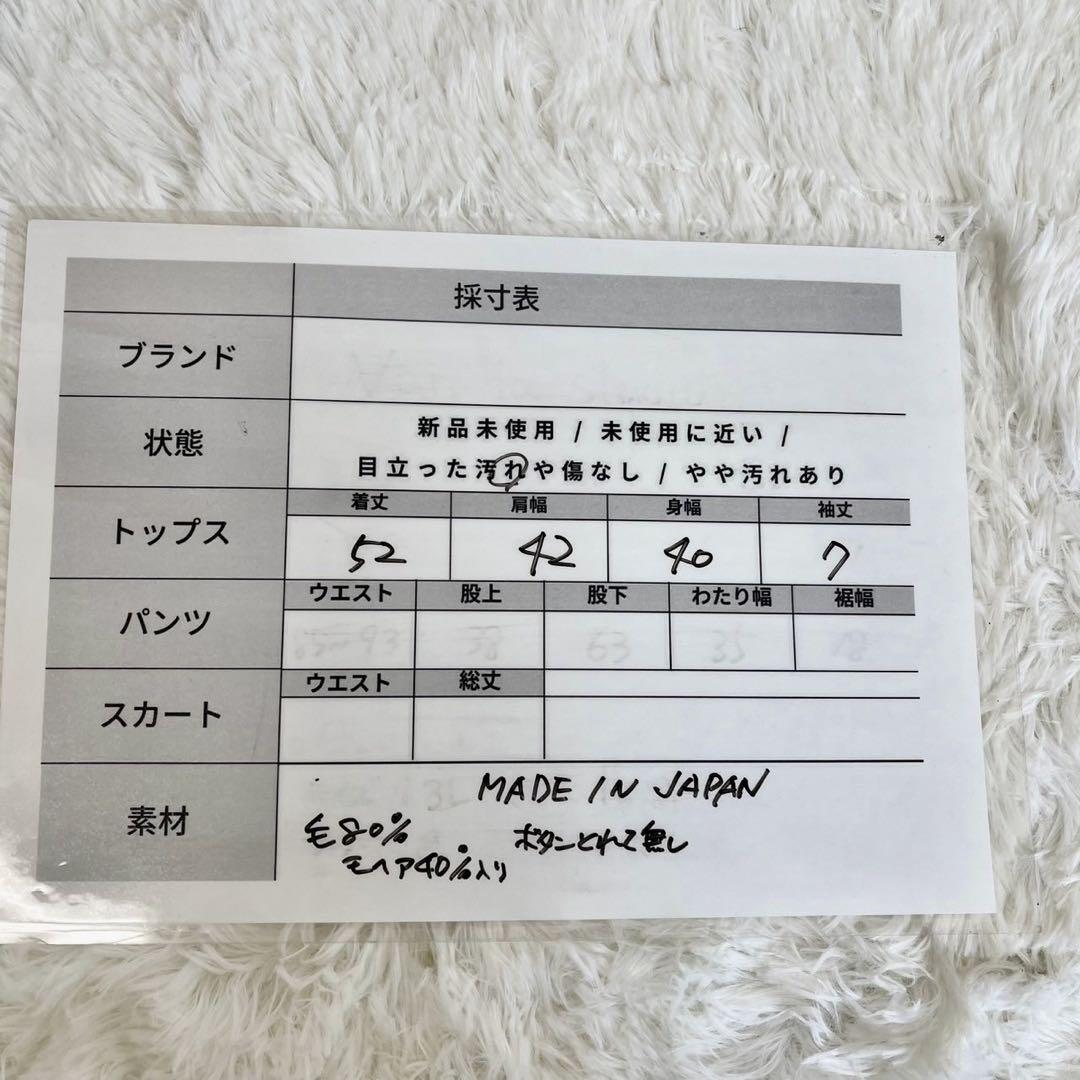 採寸表
ブランド
状態
新品未使用 / 未使用に近い /
目立った汚れや傷なし / やや汚れあり
トップス
着丈 肩幅 身幅 袖丈
52 42 40 7
パンツ
ウエスト 股上 股下 わたり幅 裾幅
63 35
スカート
ウエスト 総丈
素材
MADE IN JAPAN
毛80% ボタンとれて無し
モヘア40%入り